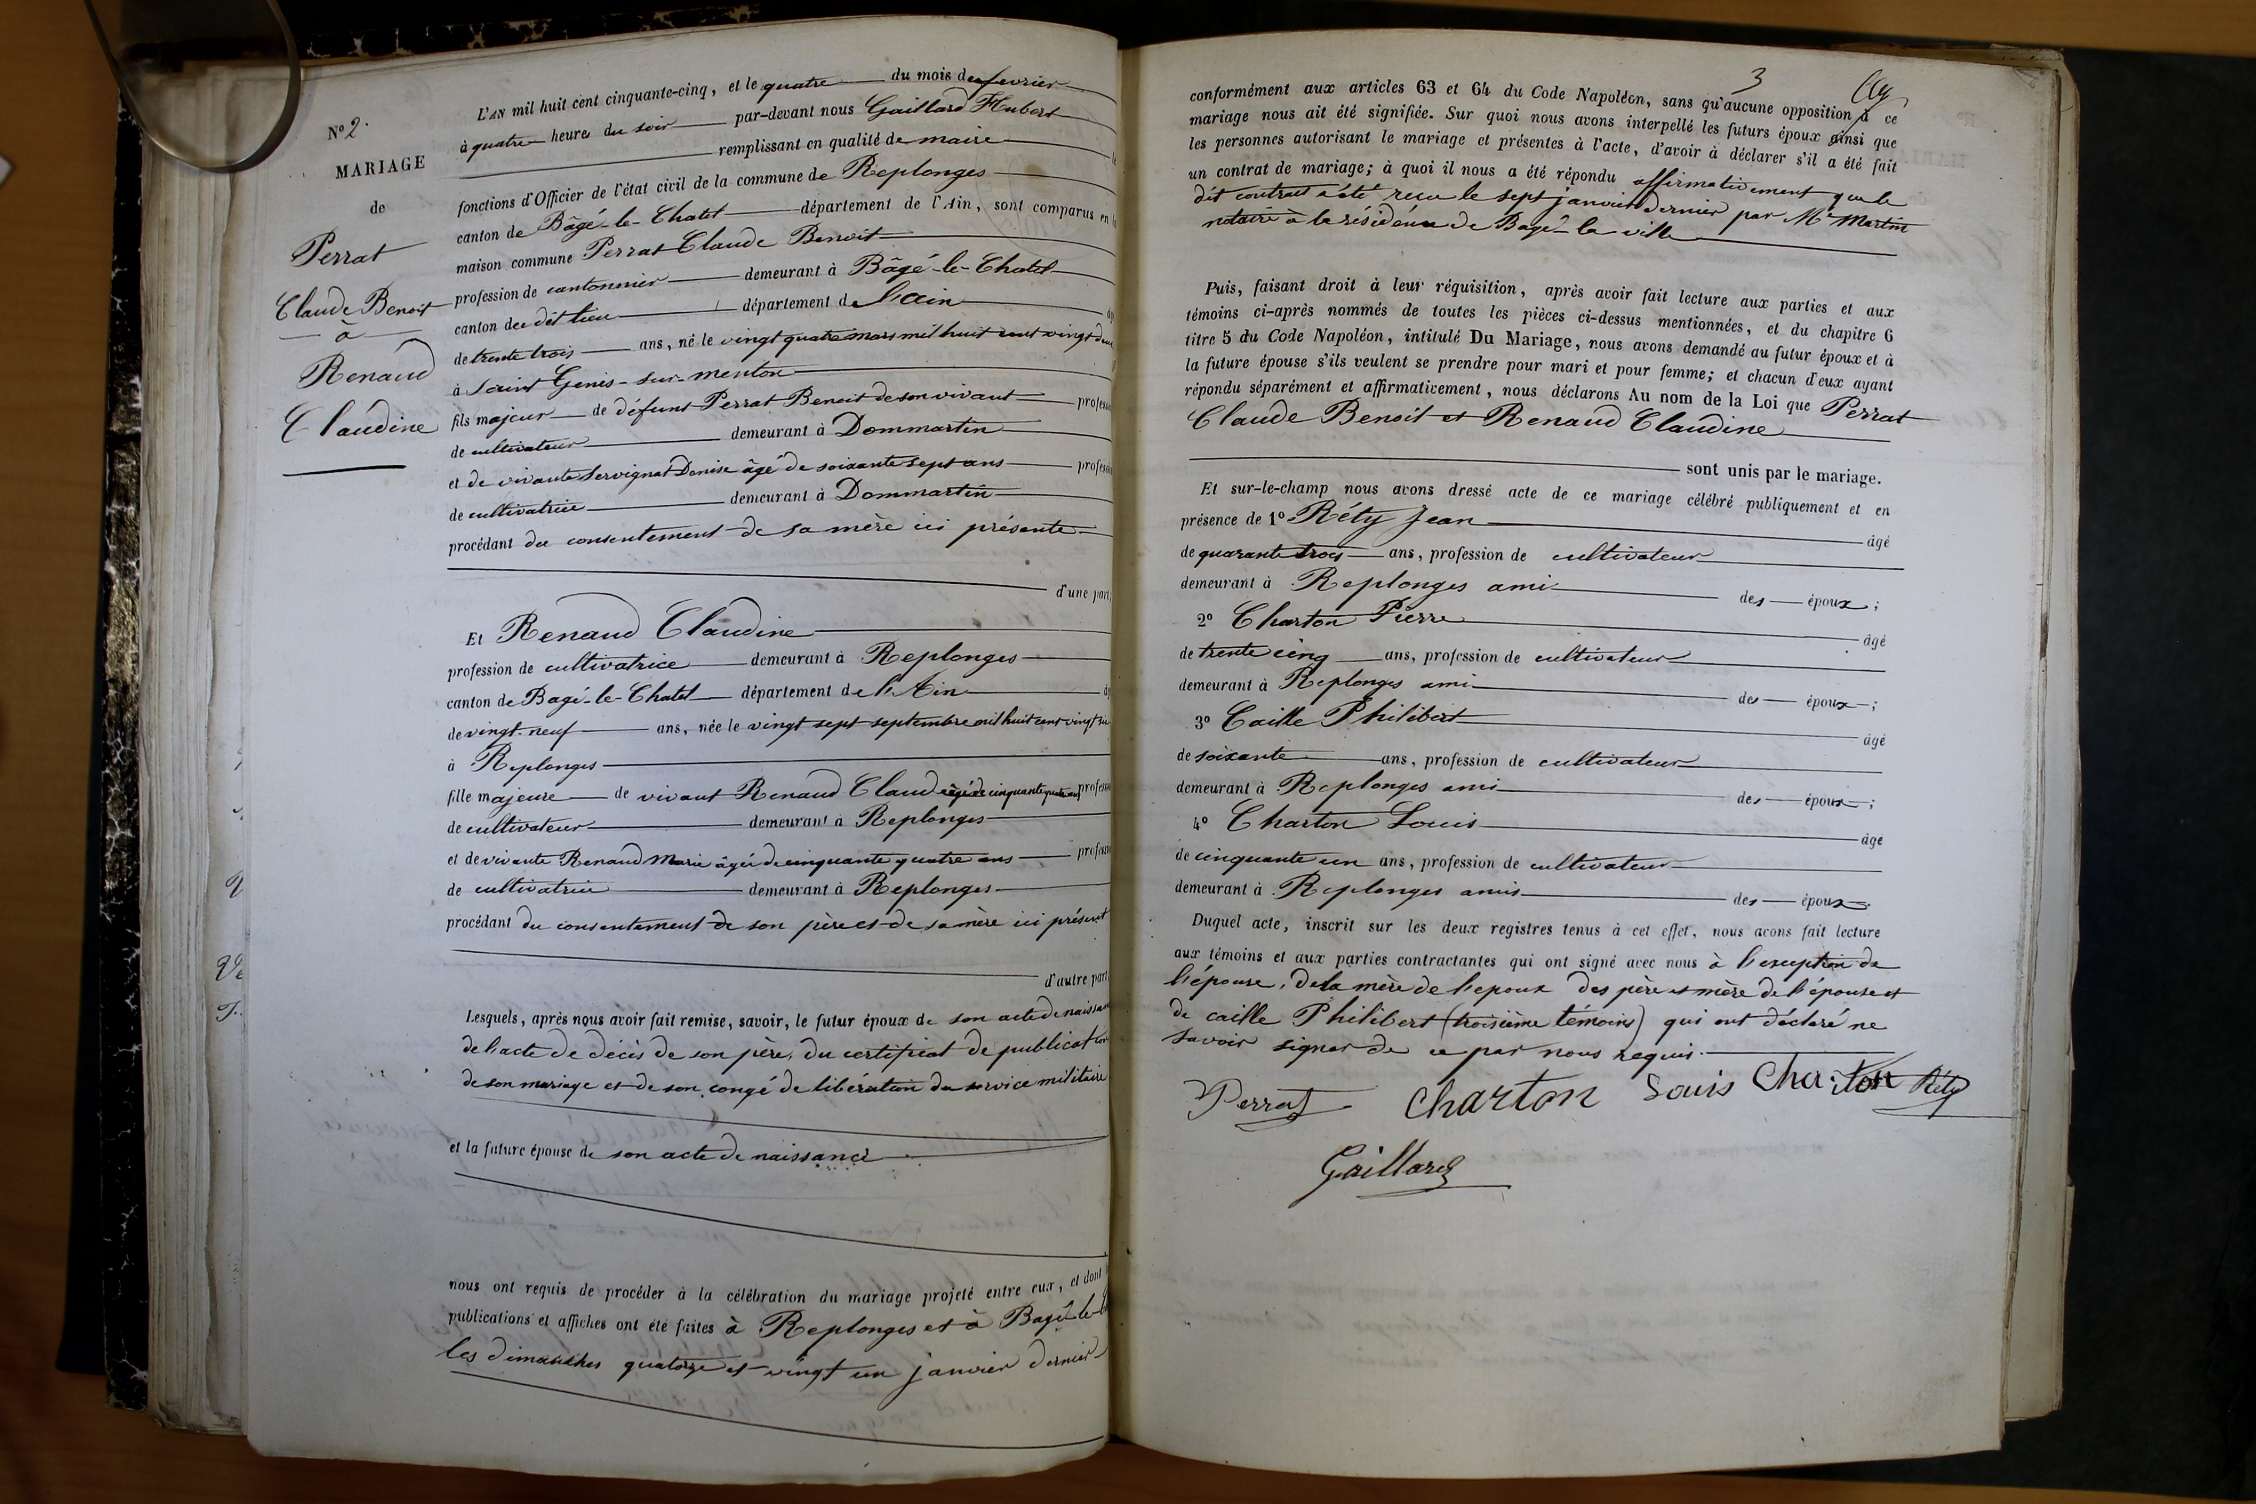 N° 2.
MARIAGE
de
Perrat
Claude Benoit
à
Renaud
Claudine
L'AN mil huit cent cinquante-cinq, et le quatre du mois de fevrier
à quatre heures du soir par-devant nous Gaillard Hubert
remplissant en qualité de maire
fonctions d'Officier de l'état civil de la commune de Replonges
canton de Bâgé-le-Chatel département de l'Ain, sont comparus en
maison commune Perrat Claude Benoit
profession de cantonnier demeurant à Bâgé-le-Chatel
canton du dit lieu département de l'ain
de trente trois ans, né le vingt quatre mars mil huit cent vingt
à Saint Genis-sur-menton
fils majeur de défunt Perrat Benoit de son vivant profess
de cultivateur demeurant à Dommartin
et de vivante Servignat Denise âgé de soixante sept ans profess
de cultivatrice demeurant à Dommartin
procédant du consentement de sa mère ici présente
d'une part,
Et Renaud Claudine
profession de cultivatrice demeurant à Replonges
canton de Bagé-le-Chatel département de l'Ain
de vingt-neuf ans, née le vingt sept septembre mil huit cent vingt
à Replonges
fille majeure de vivant Renaud Claude âgé de cinquante quatre ans profess
de cultivateur demeurant à Replonges
et de vivante Renaud Marie âgée de cinquante quatre ans profess
de cultivatrice demeurant à Replonges
procédant du consentement de son père et de sa mère ici présent
d'autre part
Lesquels, après nous avoir fait remise, savoir, le futur époux de son acte de naissan
de l'acte de décès de son père, du certificat de publication
de son mariage et de son congé de libération du service militaire
et la future épouse de son acte de naissance
nous ont requis de procéder à la célébration du mariage projeté entre eux, et dont
publications et affiches ont été faites à Replonges et à Bagé-le-
les dimanches quatorze et vingt un janvier dernier
3
conformément aux articles 63 et 64 du Code Napoléon, sans qu'aucune opposition à ce
mariage nous ait été signifiée. Sur quoi nous avons interpellé les futurs époux ainsi que
les personnes autorisant le mariage et présentes à l'acte, d'avoir à déclarer s'il a été fait
un contrat de mariage; à quoi il nous a été répondu affirmativement que le
dit contrat a été reçu le sept janvier dernier par Me Martin
notaire à la résidence de Bagé-la-ville
Puis, faisant droit à leur réquisition, après avoir fait lecture aux parties et aux
témoins ci-après nommés de toutes les pièces ci-dessus mentionnées, et du chapitre 6
titre 5 du Code Napoléon, intitulé Du Mariage, nous avons demandé au futur époux et à
la future épouse s'ils veulent se prendre pour mari et pour femme; et chacun d'eux ayant
répondu séparément et affirmativement, nous déclarons Au nom de la Loi que Perrat
Claude Benoit et Renaud Claudine
sont unis par le mariage.
Et sur-le-champ nous avons dressé acte de ce mariage célébré publiquement et en
présence de 1° Réty Jean âgé
de quarante trois ans, profession de cultivateur
demeurant à Replonges ami des époux;
2° Charton Pierre âgé
de trente cinq ans, profession de cultivateur
demeurant à Replonges ami des époux;
3° Caille Philibert âgé
de soixante ans, profession de cultivateur
demeurant à Replonges ami des époux;
4° Charton Louis âgé
de cinquante un ans, profession de cultivateur
demeurant à Replonges amis des époux.
Duquel acte, inscrit sur les deux registres tenus à cet effet, nous avons fait lecture
aux témoins et aux parties contractantes qui ont signé avec nous à l'exception de
l'épouse, de la mère de l'époux des père et mère de l'épouse et
de caille Philibert (troisième témoins) qui ont déclaré ne
savoir signer de ce par nous requis.
Perrat Charton Louis Charton Réty
Gaillard